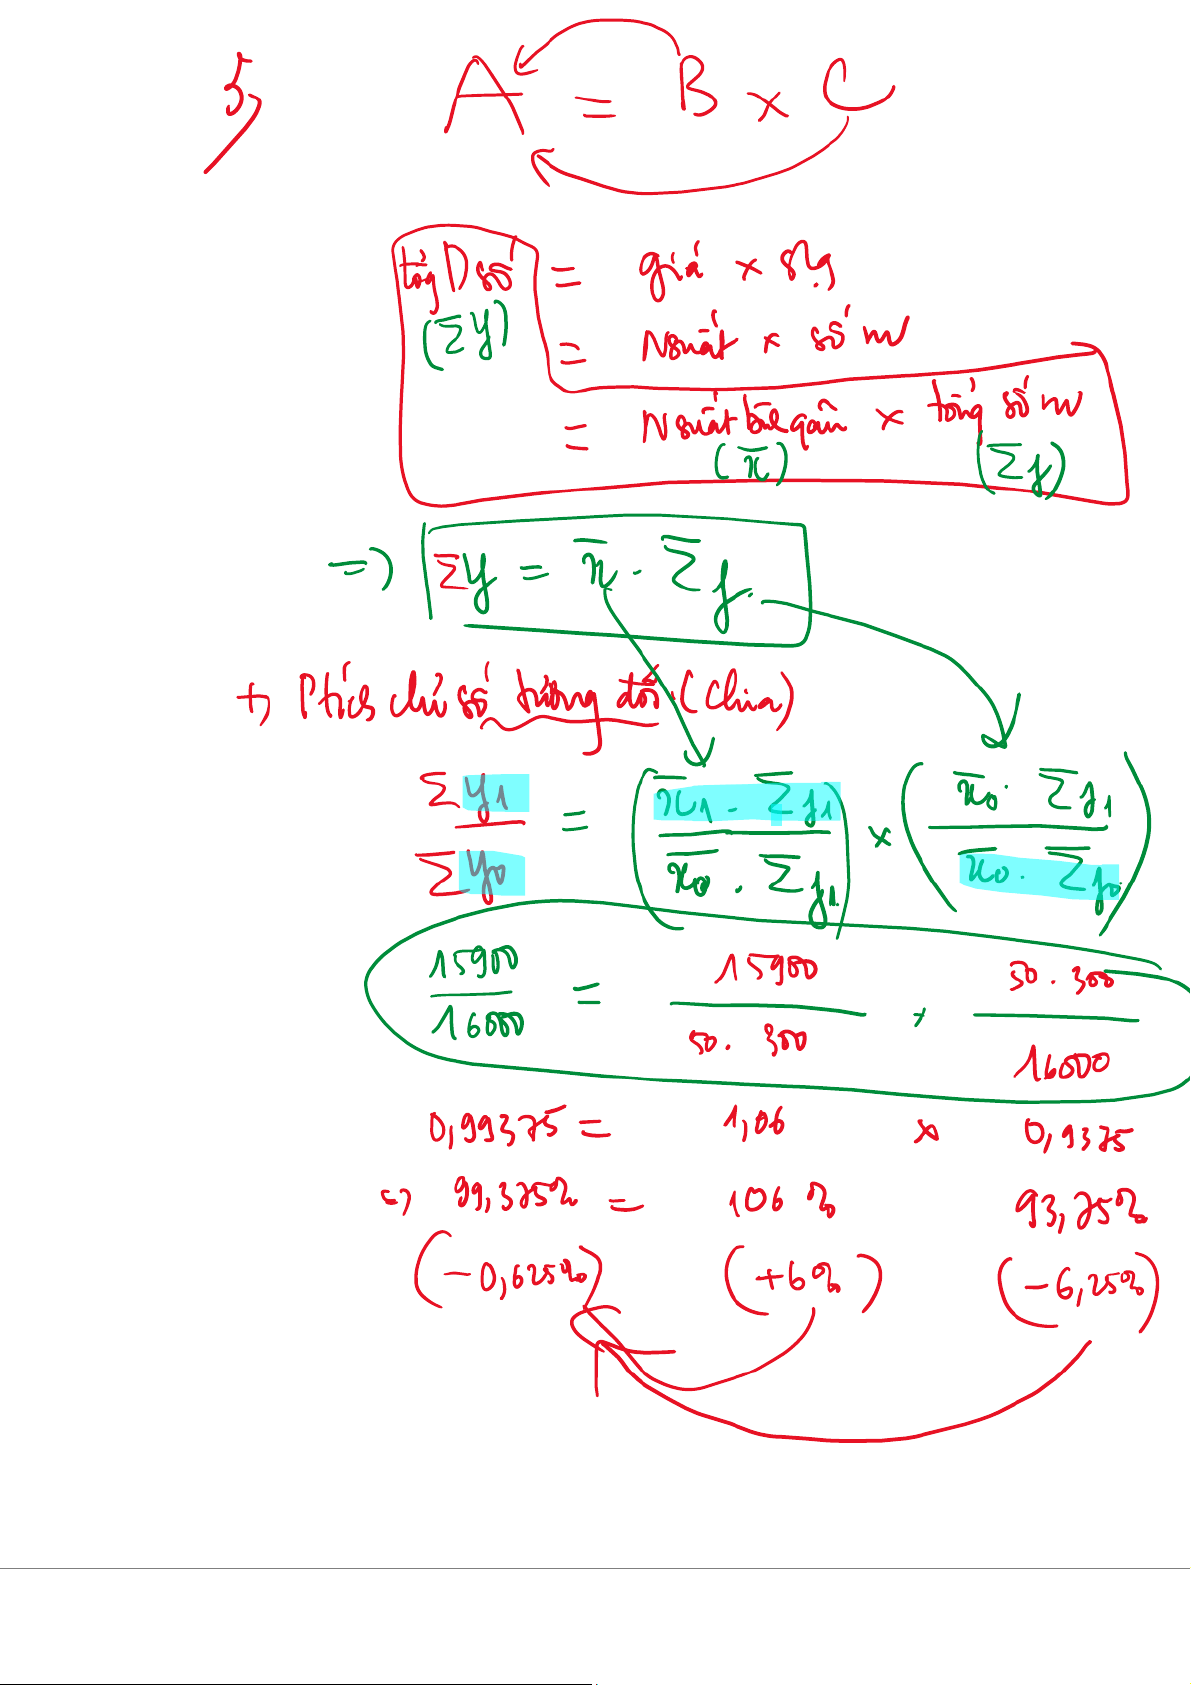 5,
A = B x C
tổng D số = giá x slg
(Σy) = Nsuất x số m
= Nsuất bq quân x tổng số m
(x̄) (Σf)
=> Σy = x̄ . Σf
+, Ptích chỉ số tương đối (Chia)
Σy₁ / Σy₀ = (x̄₁ . Σf₁ / x̄₀ . Σf₁) x (x̄₀ . Σf₁ / x̄₀ . Σf₀)
15900 / 16000 = 15900 / 50 . 300 x 50 . 300 / 16000
0,99375 = 1,06 x 0,9375
=> 99,375% = 106% 93,75%
(-0,625%) (+6%) (-6,25%)